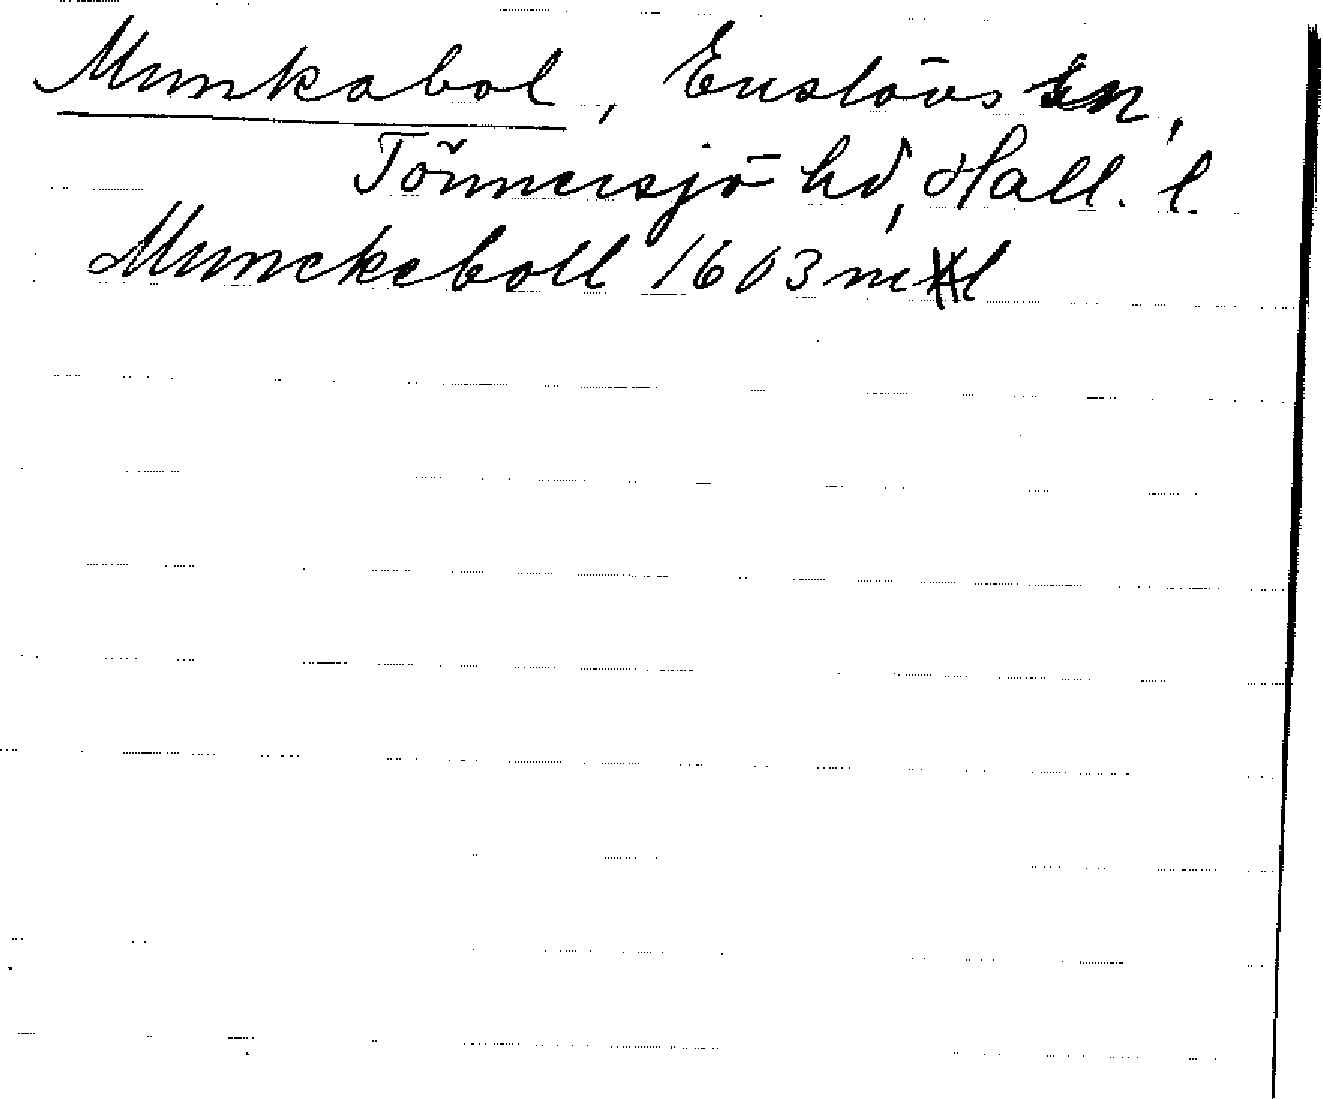 Munkabol, Enslövs sn,
Tönnersjö hd, Hall. l.
Munckeboll 1603 ml